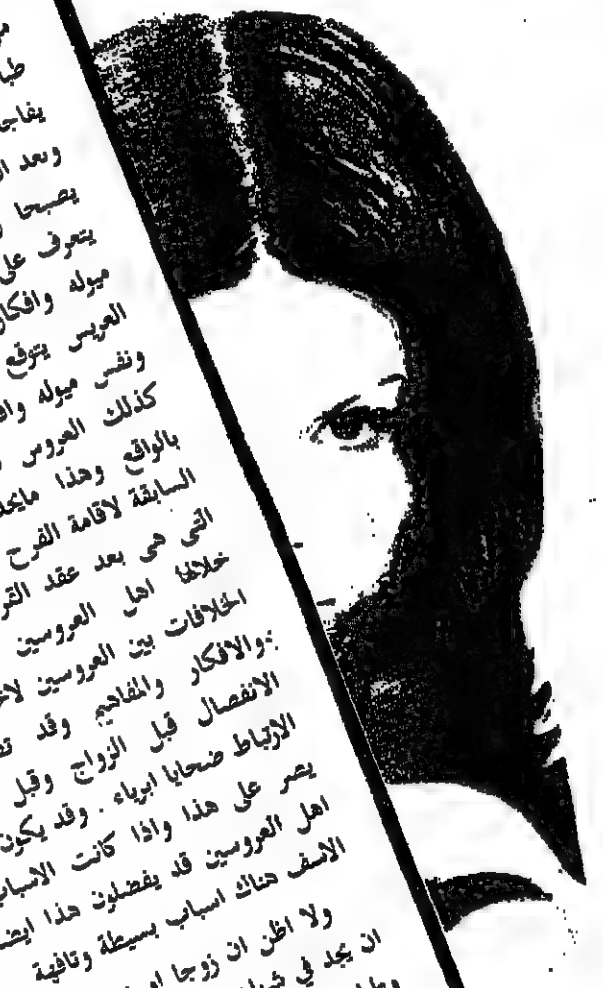 طبا
يفاجـ
وبعد ا
يصبحا
يتعرف على
ميوله وافكار
العريس يتوقع
ونفس ميوله وافـ
كذلك العروس
بالواقع وهذا مايحد
السابقة لاقامة الفرح
التى هى بعد عقد القر
خلالها اهل العروسين
الخلافات بين العروسين لا
.والافكار والمفاهيم وقد تصـ
الانفصال قبل الزواج وقبل
الارتباط ضحايا ابرياء . وقد يكون
يصر على هذا واذا كانت الاسباب
اهل العروسين قد يفضلون هذا ايضـ
الاسف هناك اسباب بسيطة وتافهة
ولا اظن ان زوجا او
ان يجد في